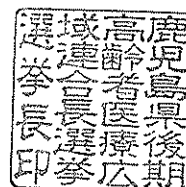 鹿児島県後期
高齢者医療広
域連合長選挙
選挙長印